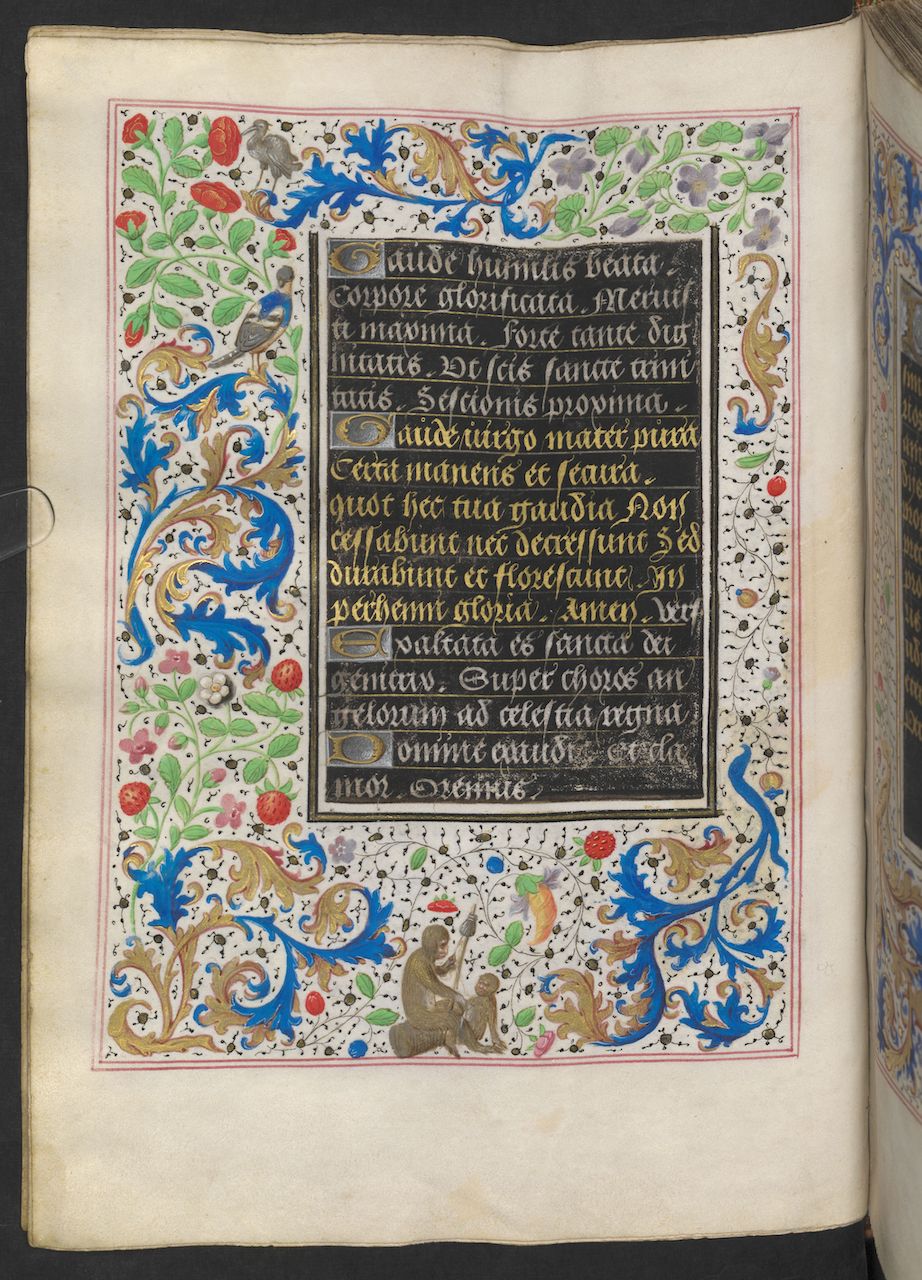 Gaude humilis beata.
Corpore glorificata. Meruis
ti maxima. Fore tante dig
nitatis. Ut scis sancte trini
tatis. Sescionis proxima.
Gaude uirgo mater pura
Certa manens et secura.
quot hec tua gaudia Non
cessabunt nec decressunt Sed
durabunt et florescunt. In
perhenni gloria. Amen. Vers
Exaltata es sancta dei
genitrix. Super choros an
gelorum ad celestia regna.
Domine exaudi. Et cla
mor. Oremus.